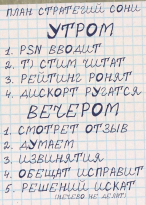 ПЛАН СТРАТЕГИЙ СОНИ
УТРОМ
1. PSN ВВОДИТ
2. Т) СТИМ ЧИТАТ
3. РЕЙТИНГ РОНЯТ
4. ДИСКОРТ РУГАТСЯ
ВЕЧЕРОМ
1. СМОТРЕТ ОТЗЫВ
2. ДУМАЕМ
3. ИЗВИНЯТИЯ
4. ОБЕЩАТ ИСПРАВИТ
5. РЕШЕНИЙ ИСКАТ
(НЕЧЕВО НЕ ДЕЛЯТ)